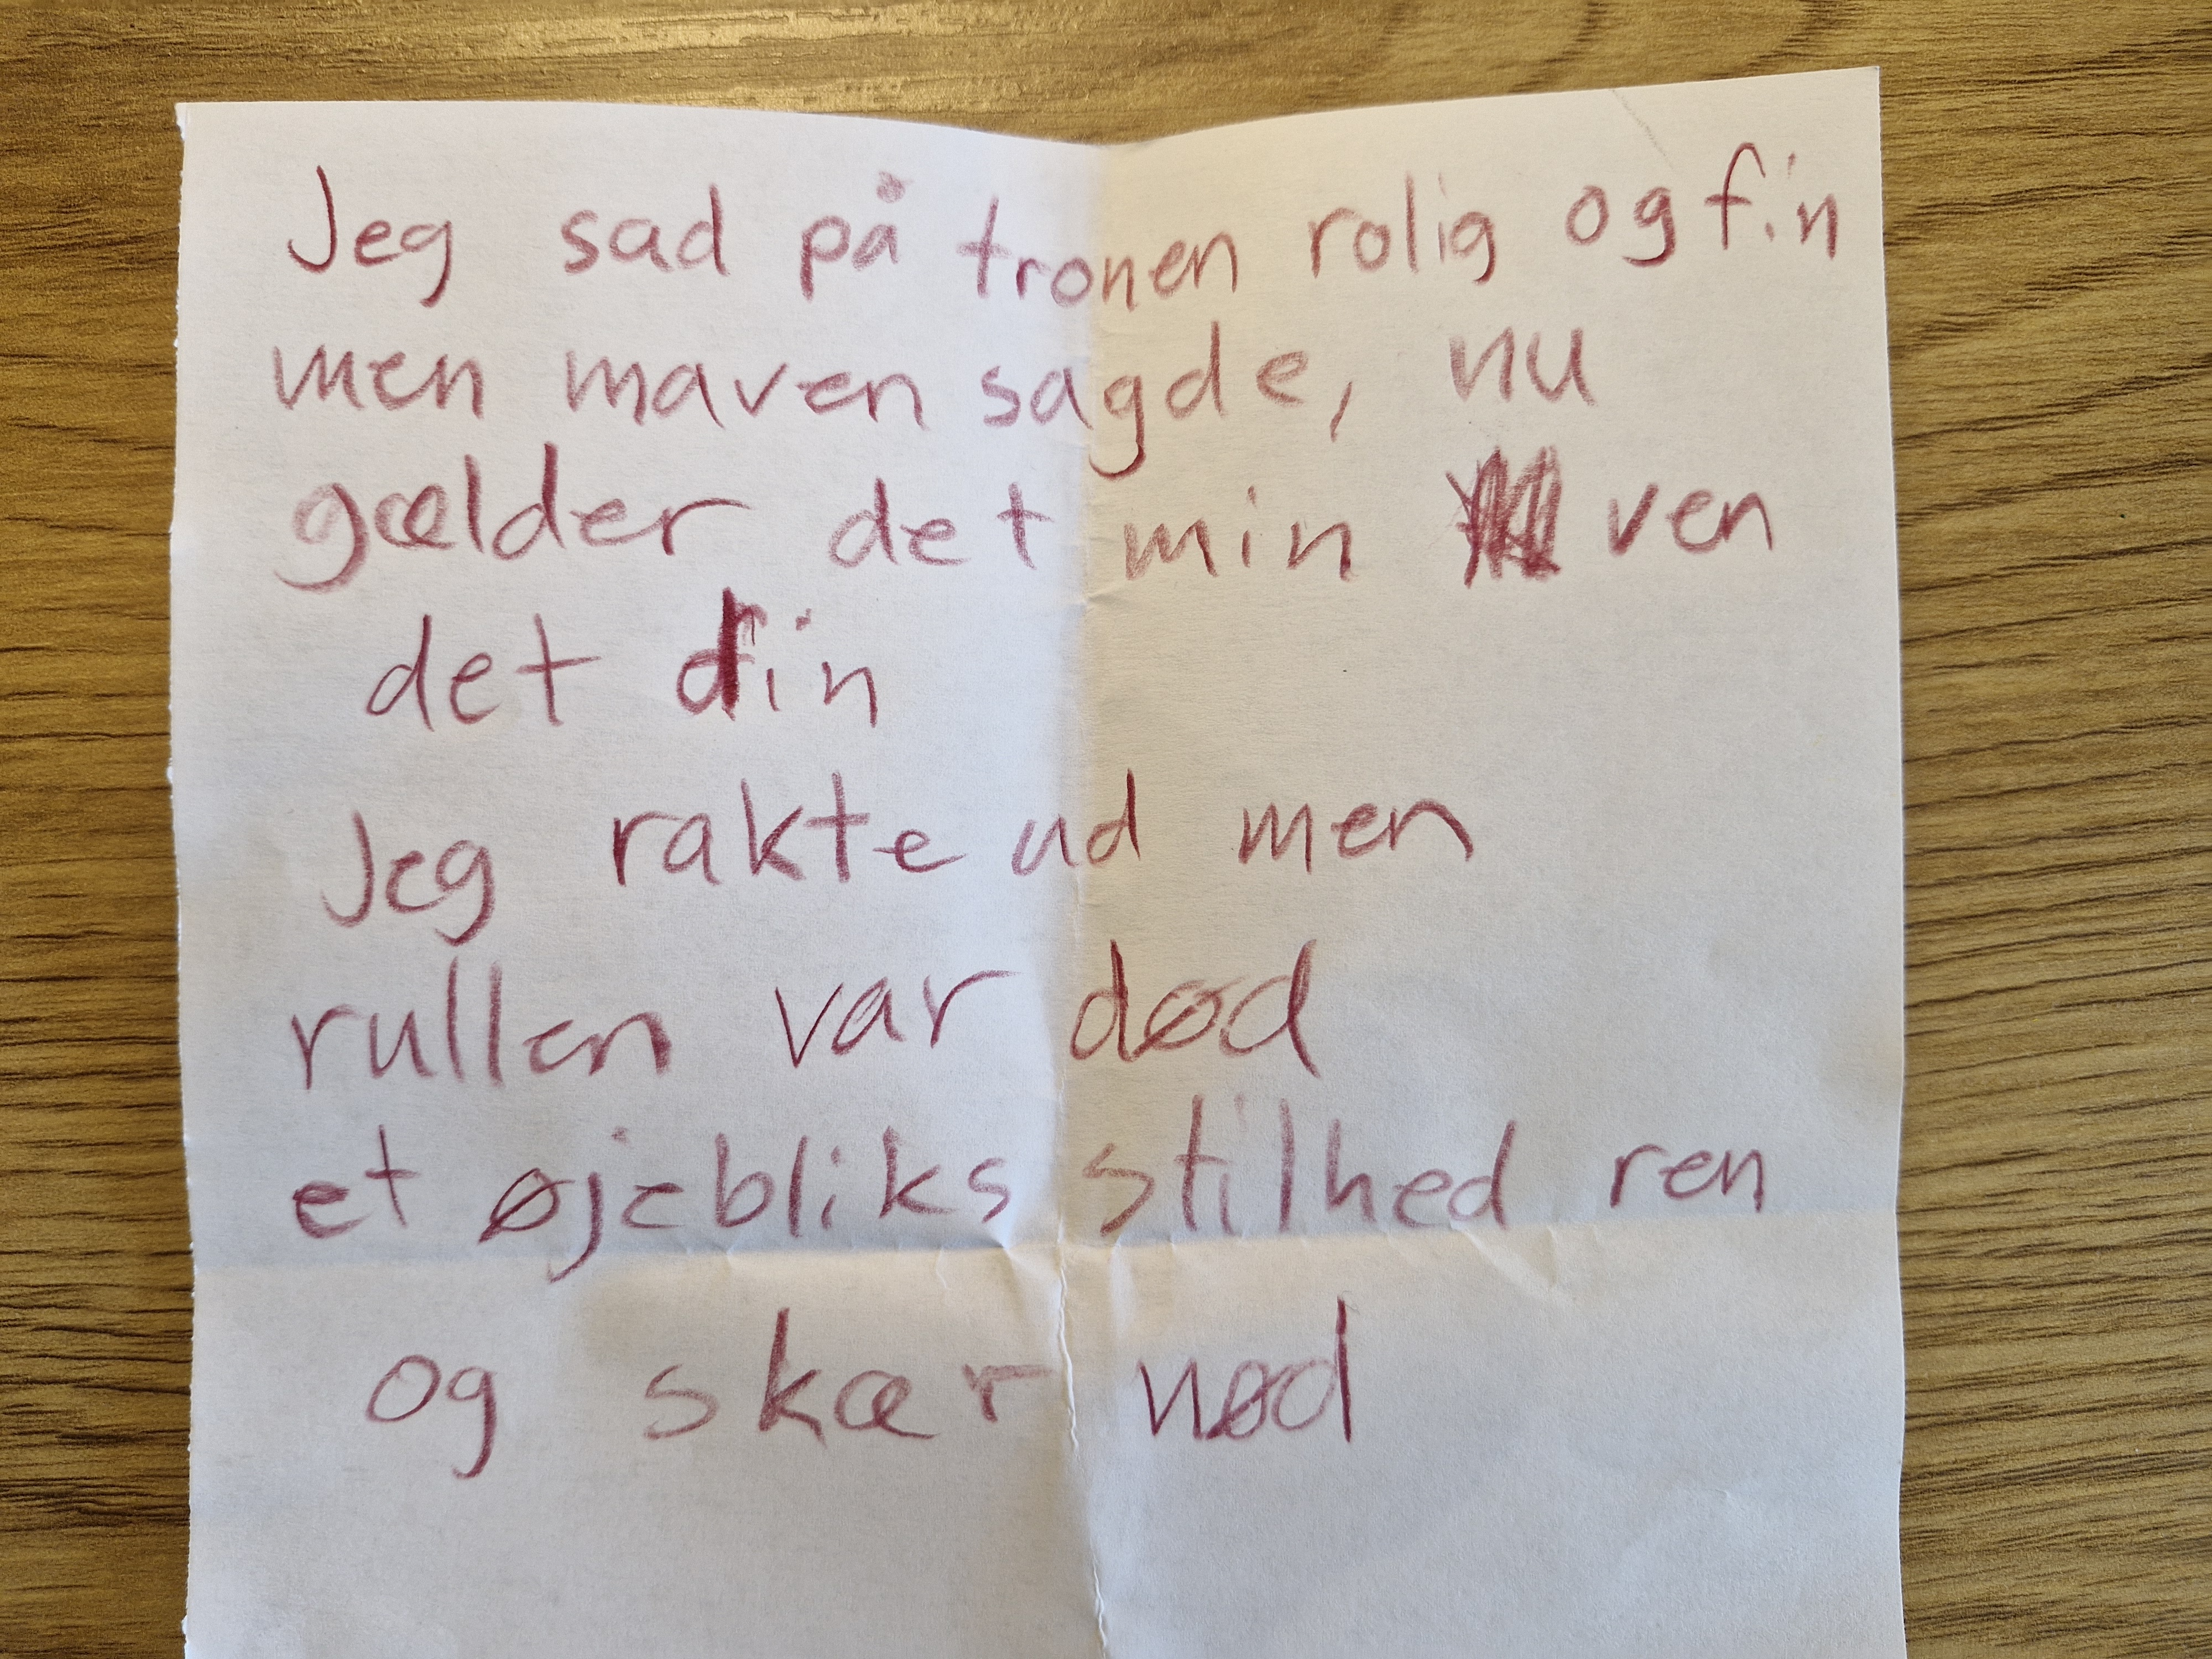 Jeg sad på tronen rolig og fin
men maven sagde, nu
gælder det min ven
det din
Jeg rakte ud men
rullen var død
et øjebliks stilhed ren
og skær nød